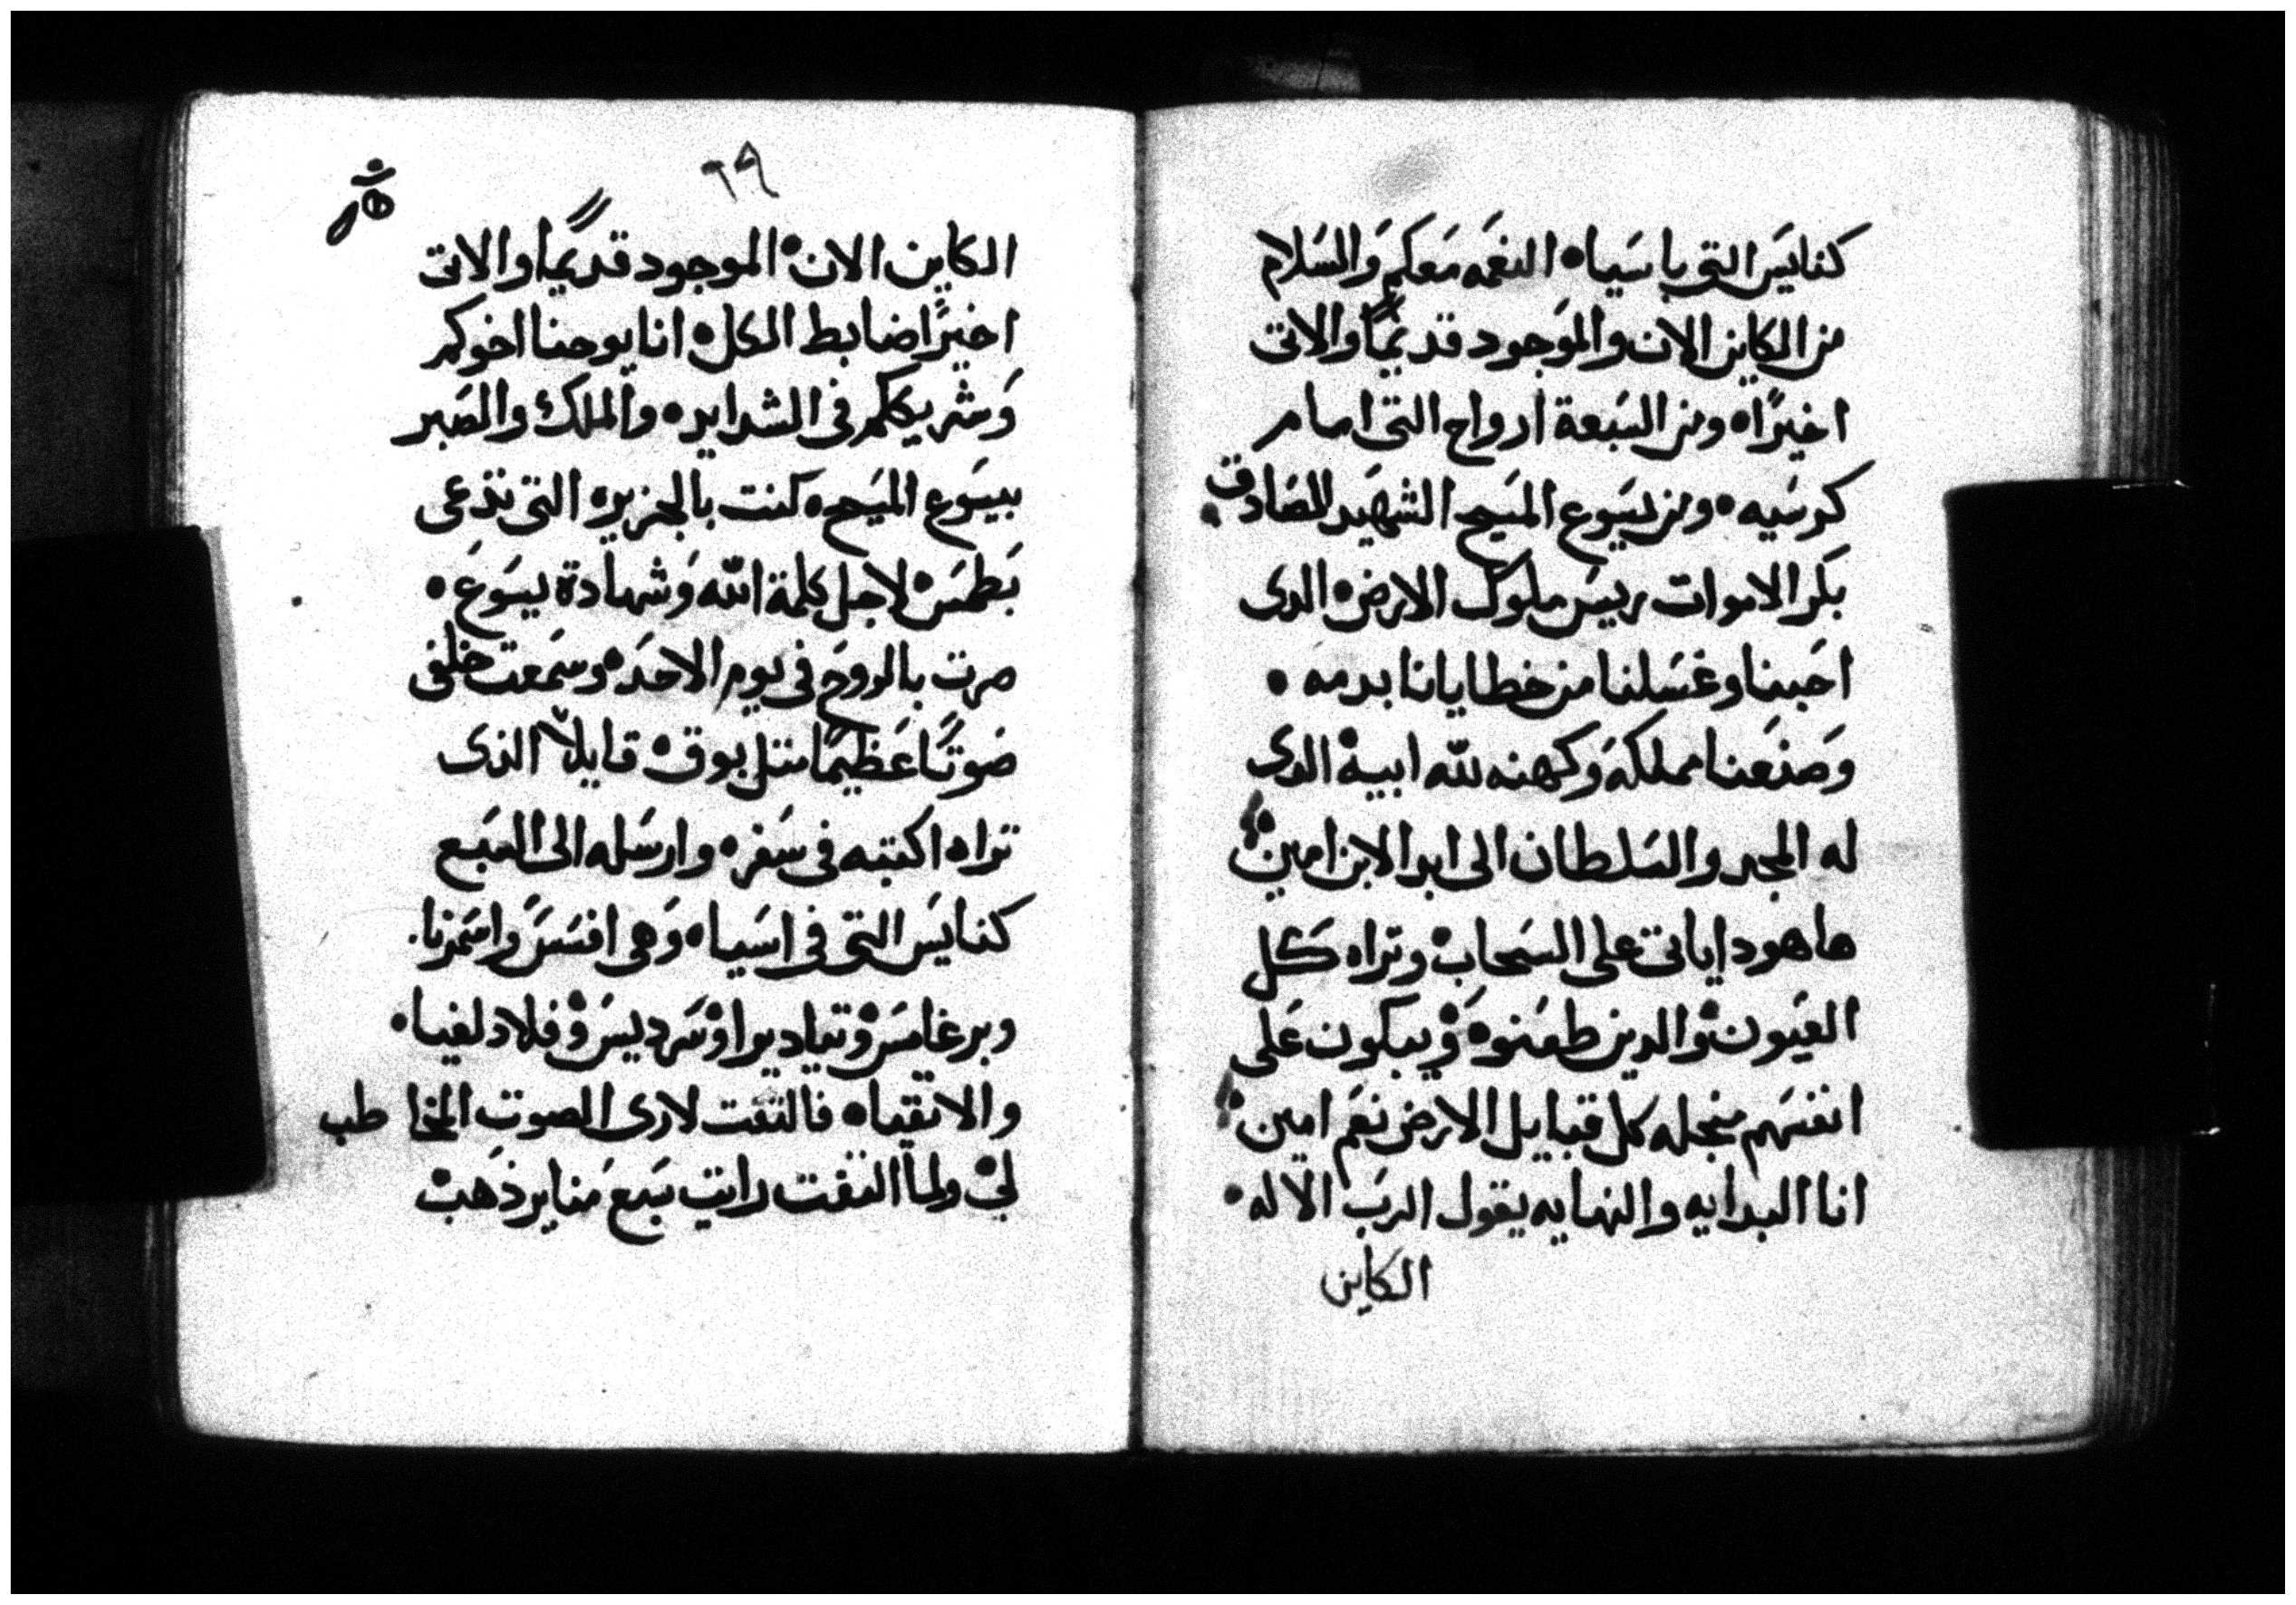 كنايس التى باسيا ه النعمه معكم والسلام
من الكاين الان والموجود قديمًا والاتى
اخيرًا ه ومن السبعة ارواح التى امام
كرسيه ه ومن يسوع المسيح الشهيد الصادق
بكر الاموات ريس ملوك الارض ه الدى
احبنا وغسلنا من خطايانا بدمه ه
وصنعنا مملكه وكهنه لله ابيه الدى
له المجد والسلطان الى ابد الابن امين
ها هودا ياتى على السحاب وتراه كل
العيون والدين طعنوه ويبكون على
انفسهم منجله كل قبايل الارض نعم امين
انا البدايه والنهايه يقول الرب الاله ه
الكاين
٦٩
الكاين الان ه الموجود قديمًا والاتى
اخيرًا ضابط الكل ه انا يوحنا اخوكم
وشريككم فى الشدايد ه والملك والصبر
بيسوع المسيح ه كنت بالجزيره التى تدعى
بطمس ه لاجل كلمة الله وشهادة يسوع ه
صرت بالروح فى يوم الاحد ه وسمعت خلفى
صوتًا عظيمًا متل بوق ه قايلًا الذى
تراه اكتبه فى سفر ه وارسله الى السبع
كنايس التى فى اسيا ه وهى افسس واسمرنا.
وبرغامس وتياديرا وسرديس وفلادلفيا ه
والاتقيا ه فالتفت لارى الصوت المخا طب
لى ه ولما التفت رايت سبع مناير ذهب ه